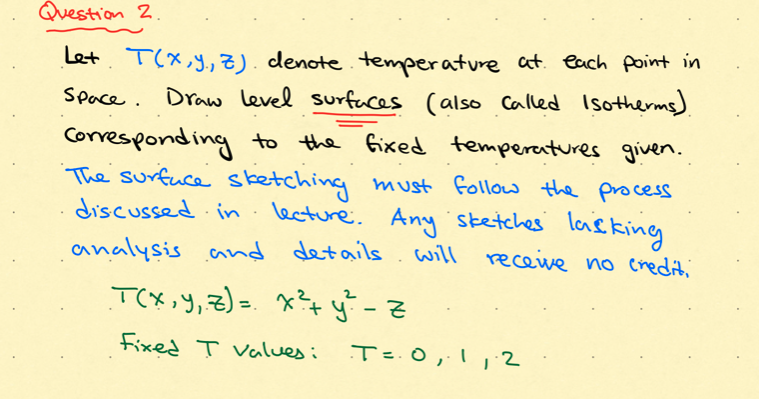 Question 2.
Let T(x,y,z) denote temperature at each point in
space. Draw level surfaces (also called Isotherms)
corresponding to the fixed temperatures given.
The surface sketching must follow the process
discussed in lecture. Any sketches lacking
analysis and details will receive no credit.
T(x,y,z) = x² + y² - z
Fixed T values: T = 0, 1, 2